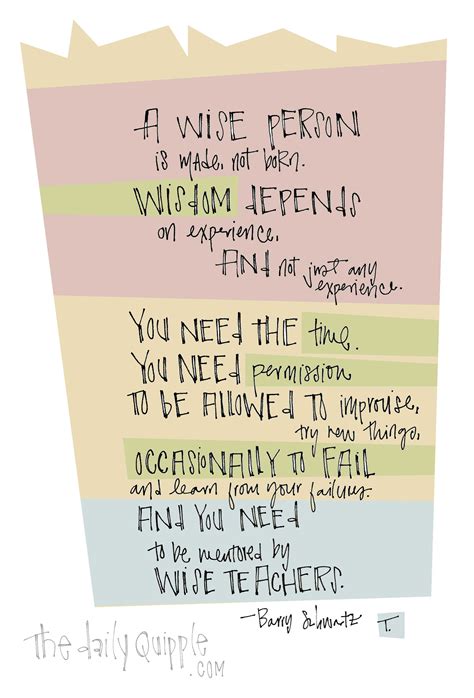 A WISE PERSON
is made, not born.
WISDOM DEPENDS
on experience,
AND not just any
experience.
YOU NEED THE time.
YOU NEED permission
TO BE ALLOWED TO improvise,
try new things,
OCCASIONALLY TO FAIL
and learn from your failures.
AND YOU NEED
to be mentored by
WISE TEACHERS.
—Barry Schwartz
T.
the daily Quipple
.COM